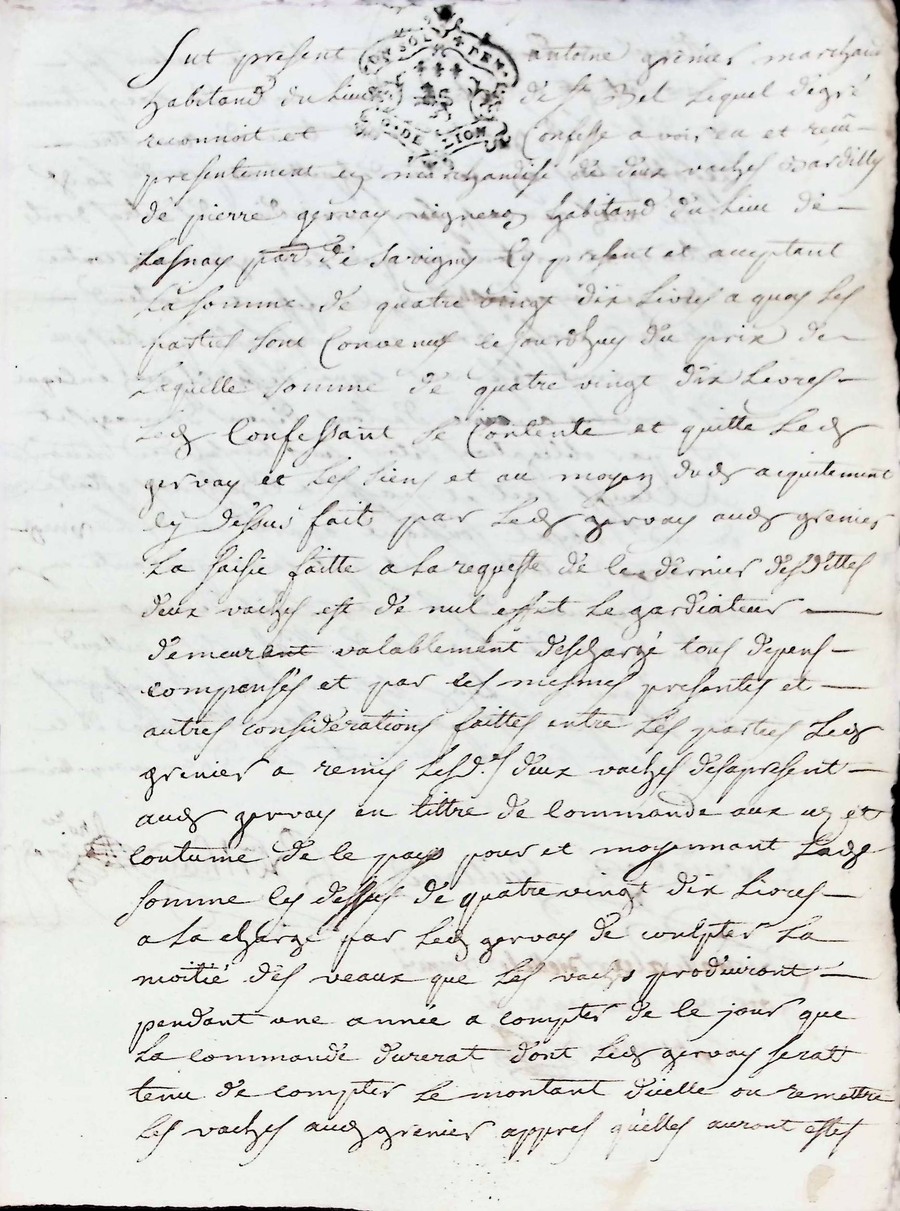 Fut present antoine grenier marchand
habitand du lieu de St Bel lequel de gré
reconnoit et Confesse avoir eu et reçu
presentement en marchandise de deux vaches
de pierre gervay vigneron habitand du lieu de
Lasnay parr de Savigny Cy present et aceptant
La somme de quatre vingt dix Livres a quoy Les
parties sont Convenus ce jourdhuy du prix de
Laquelle somme de quatre vingt dix Livres
Led Confessant se Contente et quitte Led
gervay et Les siens et au moyen dud aquitement
Cy dessus fait par Led gervay aud grenier
La saisie faitte a La requeste de ce dernier desdittes
deux vaches est de nul effet Le gardiateur
demeurant valablement deschargé tous depens
compensés et par ces mesmes presentes et
autres considerations faittes entre Les parties Led
grenier a remis Lesd.s deux vaches desapresent
aud gervay en tittre de Commande aux us et
coutume de ce pays pour et moyennant Lad
somme Cy dessus de quatre vingt dix Livres
a La charge par Led gervay de compter La
moitié des veaux que Les vaches produiront
pendant une année a compter de ce jour que
La commande durerat dont Led gervay serat
tenu de compter Le montant d'icelle ou remettre
Les vaches aud grenier appres qu'elles auront estes
CON SOLS DEN
G. DE LION